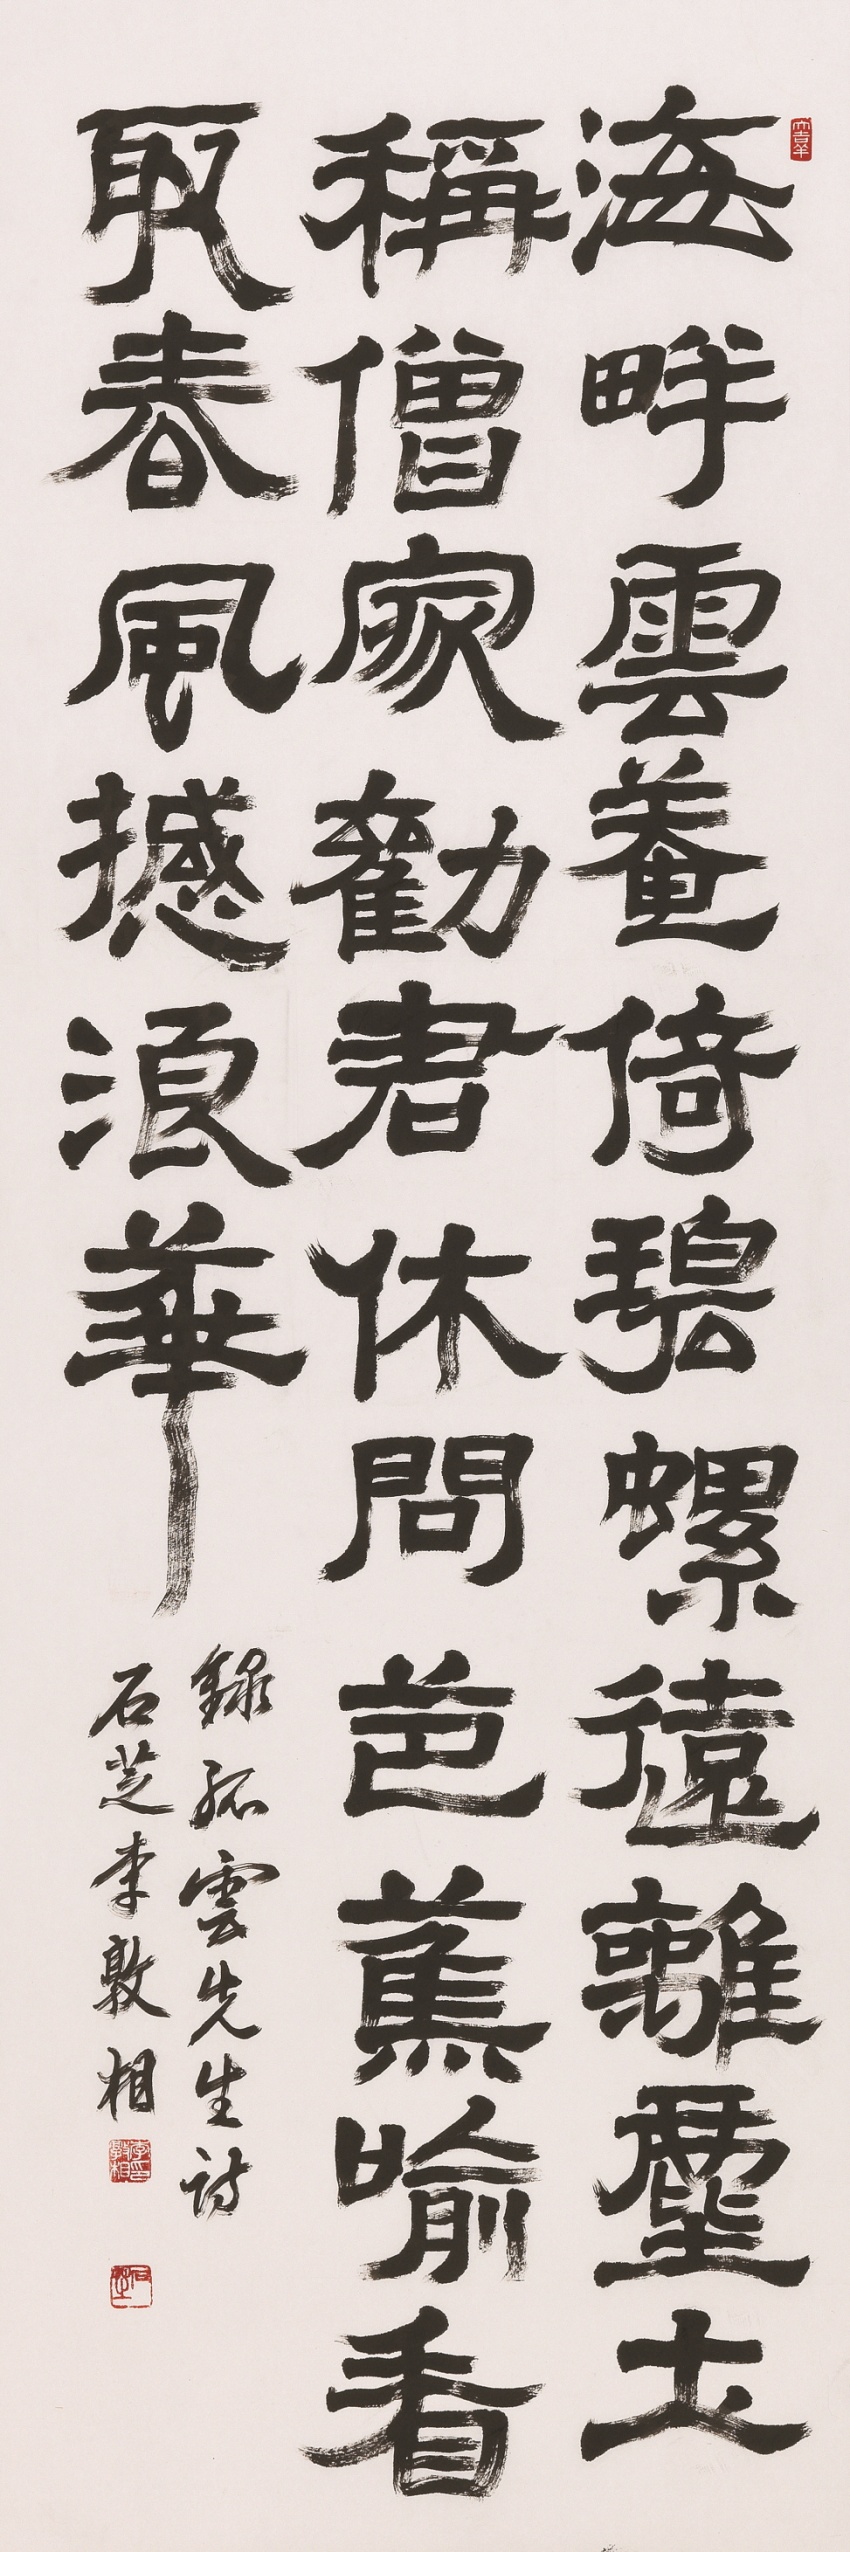 大吉羊
海畔雲菴倚碧螺遠離塵土
稱僧家勸君休問芭蕉喩看
取春風撼浪華
錄孤雲先生詩
石芝李敦相